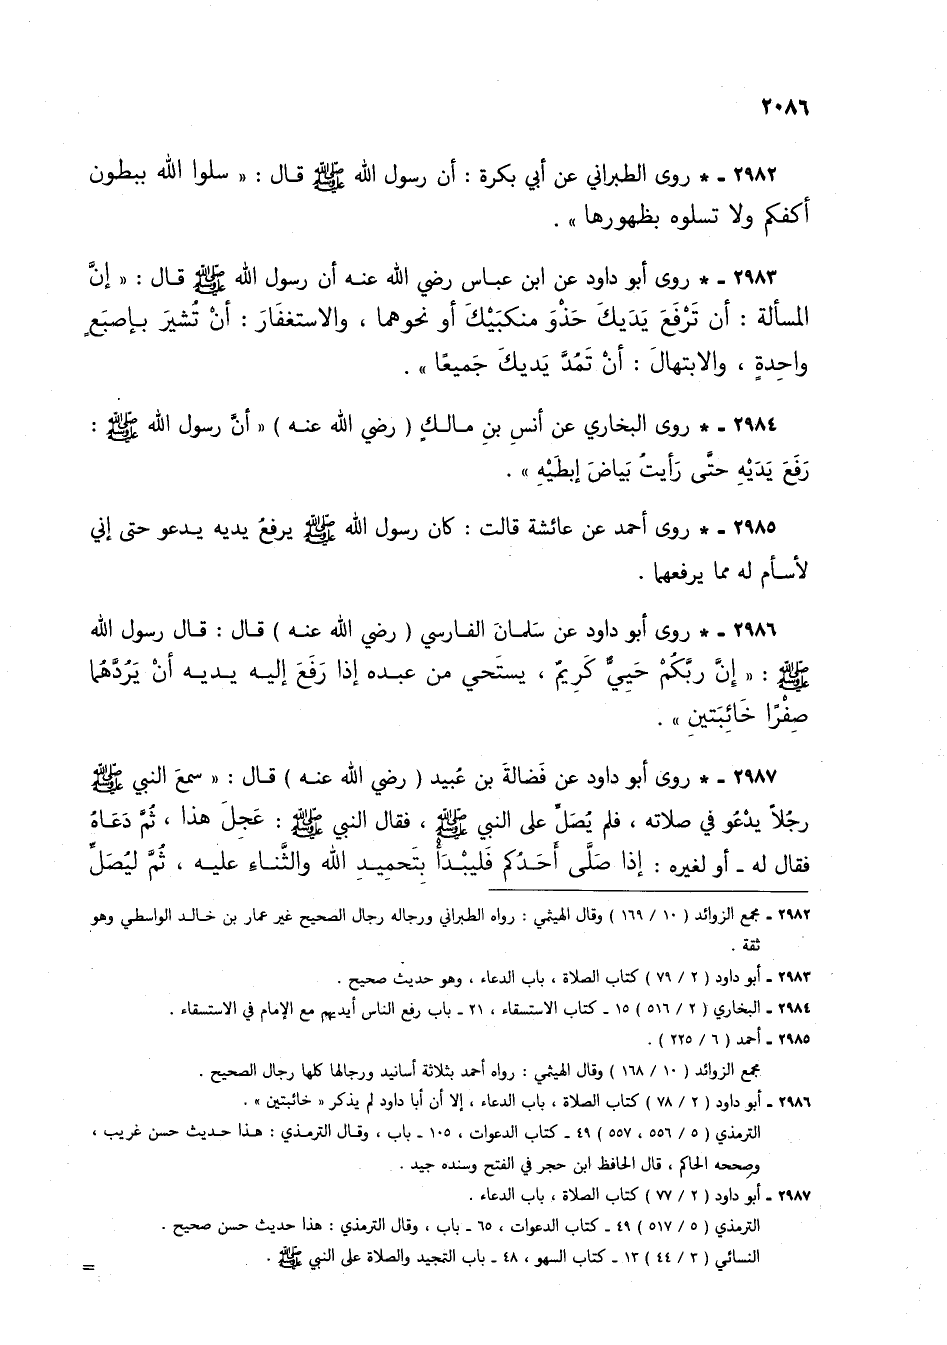 ٢٠٨٦
٢٩٨٢ - * روى الطبراني عن أبي بكرة : أن رسول الله ﷺ قال : « سلوا الله ببطون
أكفكم ولا تسلوه بظهورها » .
٢٩٨٣ - * روى أبو داود عن ابن عباس رضي الله عنه أن رسول الله ﷺ قال : « إنَّ
المسألة : أن تَرْفَعَ يَدَيكَ حَذْوَ منكبَيْكَ أو نحوهما ، والاستغفَارَ : أنْ تُشيرَ بإصبَعٍ
واحِدةٍ ، والابتهالَ : أنْ تَمُدَّ يَديكَ جَميعًا » .
٢٩٨٤ - * روى البخاري عن أنسِ بنِ مالكٍ ( رضي الله عنه ) « أنَّ رسول الله ﷺ :
رَفَعَ يَدَيْهِ حتَّى رَأيتُ بَياضَ إبطَيْهِ » .
٢٩٨٥ - * روى أحمد عن عائشة قالت : كان رسول الله ﷺ يرفعُ يديه يدعو حتى إني
لأسأم له مما يرفعهما .
٢٩٨٦ - * روى أبو داود عن سَلمانَ الفارسي ( رضي الله عنه ) قال : قال رسول الله
ﷺ : « إِنَّ ربَّكُمْ حَيِيٌّ كَرِيمٌ ، يستَحي من عبده إذا رَفَعَ إليه يديه أنْ يَرُدَّهُما
صِفْرًا خَائِبَتينِ » .
٢٩٨٧ - * روى أبو داود عن فَضالةَ بن عُبيد ( رضي الله عنه ) قال : « سمعَ النبي ﷺ
رجُلاً يدْعُو في صلاته ، فلم يُصَلِّ على النبي ﷺ ، فقال النبي ﷺ : عَجِلَ هذا ، ثُمَّ دَعَاهُ
فقال له - أو لغيره : إذا صَلَّى أَحَدُكم فَليبْدَأْ بتَحميدِ الله والثَّناءِ عليه ، ثُمَّ ليُصَلِّ
٢٩٨٢ - مجمع الزوائد ( ١٠ / ١٦٩ ) وقال الهيثمي : رواه الطبراني ورجاله رجال الصحيح غير عمار بن خالد الواسطي وهو
ثقة .
٢٩٨٣ - أبو داود ( ٢ / ٧٩ ) كتاب الصلاة ، باب الدعاء ، وهو حديث صحيح .
٢٩٨٤ - البخاري ( ٢ / ٥١٦ ) ١٥ - كتاب الاستسقاء ، ٢١ - باب رفع الناس أيديهم مع الإمام في الاستسقاء .
٢٩٨٥ - أحمد ( ٦ / ٢٢٥ ) .
مجمع الزوائد ( ١٠ / ١٦٨ ) وقال الهيثمي : رواه أحمد بثلاثة أسانيد ورجالها كلها رجال الصحيح .
٢٩٨٦ - أبو داود ( ٢ / ٧٨ ) كتاب الصلاة ، باب الدعاء ، إلا أن أبا داود لم يذكر « خائبتين » .
الترمذي ( ٥ / ٥٥٦ ، ٥٥٧ ) ٤٩ - كتاب الدعوات ، ١٠٥ - باب ، وقال الترمذي : هذا حديث حسن غريب ،
وصححه الحاكم ، قال الحافظ ابن حجر في الفتح وسنده جيد .
٢٩٨٧ - أبو داود ( ٢ / ٧٧ ) كتاب الصلاة ، باب الدعاء .
الترمذي ( ٥ / ٥١٧ ) ٤٩ - كتاب الدعوات ، ٦٥ - باب ، وقال الترمذي : هذا حديث حسن صحيح .
النسائي ( ٣ / ٤٤ ) ١٣ - كتاب السهو ، ٤٨ - باب التمجيد والصلاة على النبي ﷺ .
=